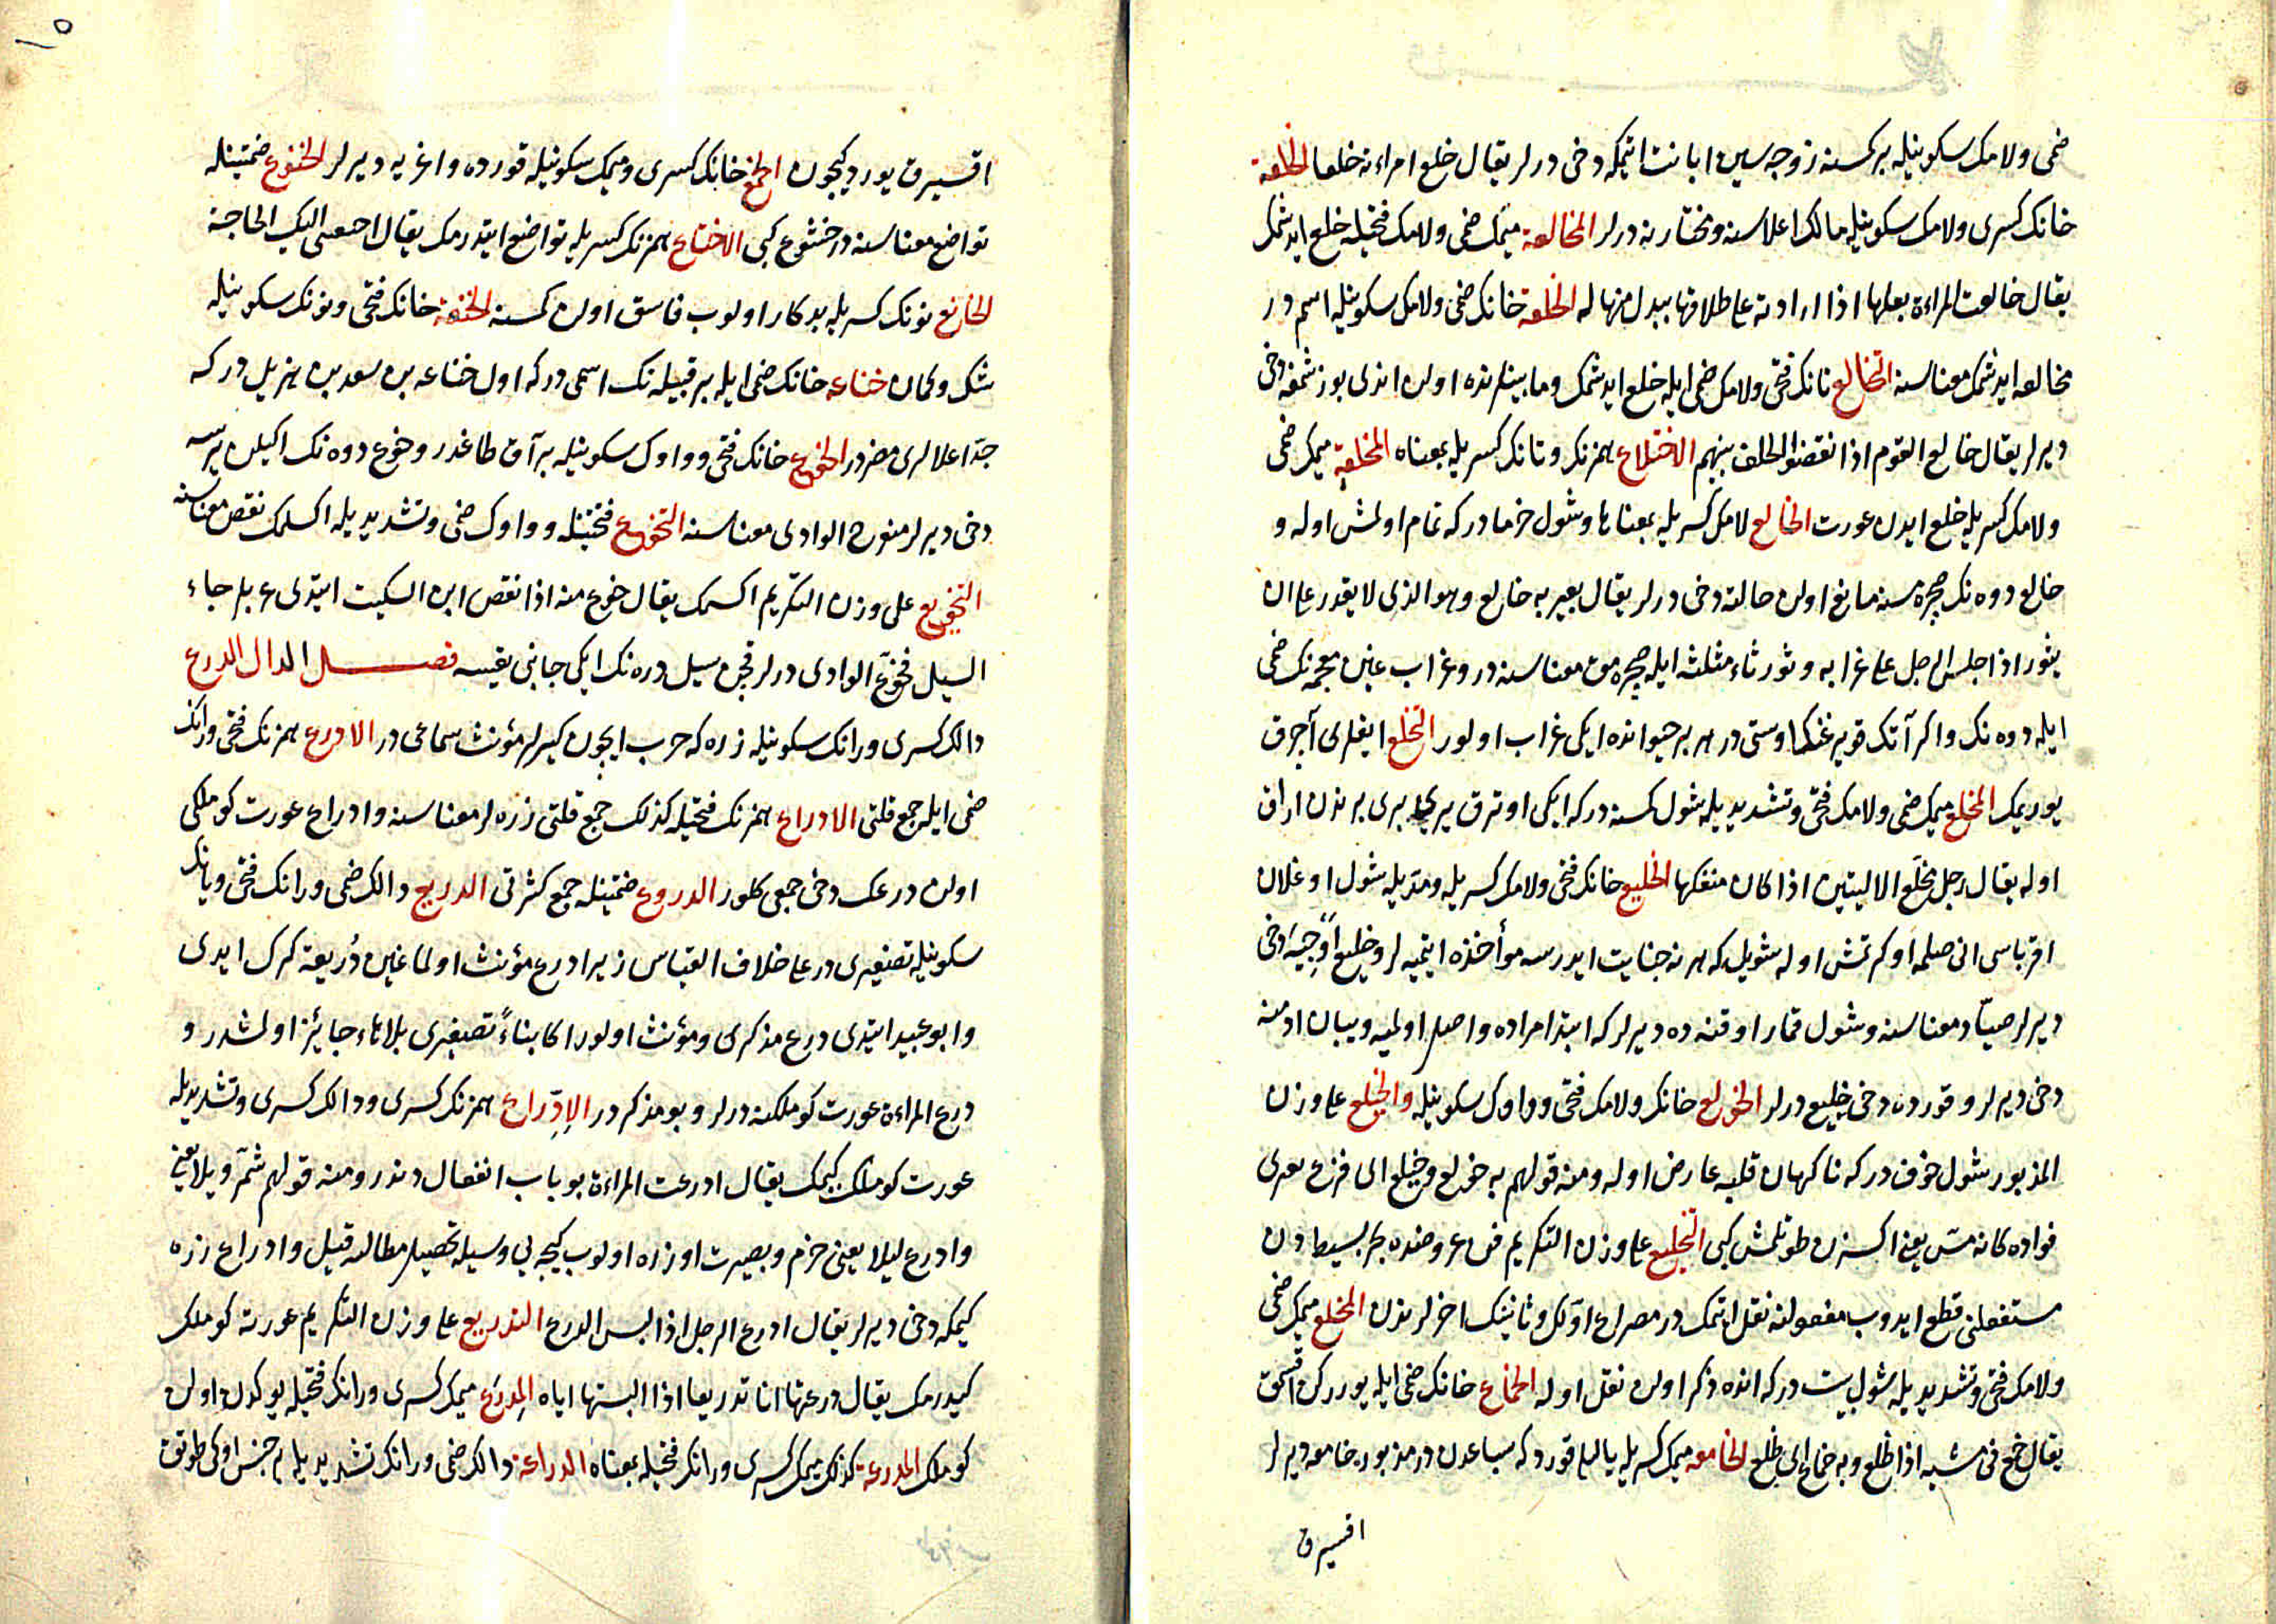 ضمى ولامك سكونيله بر كمسنه زوجه سين ابانت ايتمكه دخى درلر يقال خلع امراءته خلعا الخلعة
خانك كسرى ولامك سكونيله مالك اعلاسنه ومختارينه درلر المخالعة ميمك ضمى ولامك فتحيله خلع ايدشمك
يقال خالعت المراءة بعلها اذا ارادته على طلاقها ببدل منها له الخلعة خانك ضمى ولامك سكونيله اسمدر
مخالعه ايدشمك معناسنه التخالع تانك فتحى ولامك ضمى ايله خلع ايدشمك وما بينلرنده اولان اندى بوزشمغه دخى
ديرلر يقال تخالع القوم اذا نقضوا الحلف بينهم الاختلاع همزنك وتانك كسريله بمعناه المختلعة ميمك ضمى
ولامك كسريله خلع ايدن عورت الخالع لامك كسريله بمعناها وشول خرمادركه تمام اولمش اوله و
خالع دوه نك صچره مسنه مانع اولان حالته دخى درلر يقال بعير به خالع وهو الذى لا يقدر على ان
يثور اذا جلس الرجل على غرابه وثور ثاء مثلثه ايله صچره مق معناسنه در وغراب غين معجمه نك ضمى
ايله دوه نك واكر آتك قويرغنك اوستى در هر بر حيوانده ايكى غراب اولور التخلع ايقلرى آچرق
يوريمك المخلع ميمك ضمى ولامك فتحى وتشديديله شول كمسنه دركه ايكى اوترق يرى برى برندن اراق
اوله يقال رجل مخلع الاليتين اذا كان منفكهما الخليع خانك فتحى ولامك كسريله ومديله شول اوغلان
اقرباسى انى صلمه اوكرتمش اوله شويله كه هر نه جنايت ايدرسه مؤأخذه ايتميه لر وخليع آوجيه دخى
ديرلر صياد معناسنه وشول قمار اوقنه ده ديرلركه ابتدا مراده واصل اولميه وبيان ادمنه
دخى ديرلر وقورده دخى خليع درلر الخولع خانك ولامك فتحى وواوك سكونيله والخيلع على وزن
المذبور شول خوف دركه ناكهان قلبه عارض اوله ومنه قولهم به خولع وخيلع اى فزع يعترى
فواده كانه مس يعنى اكسزن طوتلمش كبى التخليع على وزن التكريم فن عروضده بحر بسيطدن
مستفعلن قطع ايدوب مفعولنه نقل ايتمك در مصراع اولك وثانينك اخرلرندن المخلع ميمك ضمى
ولامك فتحى وتشديديله شول بيت دركه انده ذكر اولان نقل اوله الخماع خانك ضمى ايله يورركن اقسمق
يقال خمع فى مشيه اذا ظلع وبه خماع اى ظلع الخامعه ميمك كسريله يالليا قوردكه سباعدن در مذبوره خامعه ديرلر
اقسيرق
١٥
اقسيرق يورديكيچون الخمع خانك كسرى وميمك سكونيله قورده واغريه ديرلر الخنوع ضمتينله
تواضع معناسنه در خشوع كبى الاخناع همزنك كسريله تواضع ايتدرمك يقال اخنعتنى اليك الحاجة
الخانع نونك كسريله بدكار اولوب فاسق اولان كمسنه الخنعة خانك فتحى ونونك سكونيله
شك وكمان خناعه خانك ضمى ايله بر قبيله نك اسمى دركه اول خناعه بن سعد بن هزيل دركه
جد اعلالرى مضردر الخوع خانك فتحى وواوك سكونيله بر آق طاغدر وخوع دوه نك اكيلن يرسه
دخى ديرلر منعرج الوادى معناسنه التخوع فتحتينله وواوك ضمى وتشديديله اكسلمك نقص معناسنه
التخويع على وزن التكريم اكسمك يقال خوع منه اذا نقص ابن السكيت ايتدى عربلر جاء
السيل فخوع الوادى درلر قچن سيل دره نك ايكى جانبى يقسه فصل الدال الدرع
دالك كسرى ورانك سكونيله زره كه حرب ايچون كيرلر مؤنث سماعى در الادرع همزنك فتحى ورانك
ضمى ايله جمع قلتى الادراع همزنك فتحيله كذلك جمع قلتى زره لر معناسنه وادراع عورت كوملكى
اولان درعك دخى جمعى كلور الدروع ضمتينله جمع كثرتى الدريع دالك ضمى ورانك فتحى ويانك
سكونيله تصغيرى در على خلاف القياس زيرا درع مؤنث اولماغين دريعة كرك ايدى
وابو عبيد ايتدى درع مذكرى ومؤنث اولور اكا بناءً تصغيرى بلا هاء جايئز اولمشدر و
درع المراءة عورت كوملكنه درلر وبو مذكردر الادراع همزنك كسرى ودالك كسرى وتشديديله
عورت كوملك كيمك يقال ادرعت المراءة بو باب انفعال دندر ومنه قولهم شمر ذيلا يعنى
وادرع ليلا يعنى حزم وبصيرت اوزره اولوب كيجه يى وسيله تحصيل مطالب قيل وادراع زره
كيمكه دخى ديرلر يقال ادرع الرجل اذا لبس الدرع التدريع على وزن التكريم عورته كوملك
كيدرمك يقال درعتها انا تدريعا اذا البستها اياه المدرع ميمك كسرى ورانك فتحيله يوكدن اولان
كوملك المدرعة كذلك ميمك كسرى ورانك فتحيله بمعناه الدراعة دالك ضمى ورانك تشديديله بر جنس اوكى طوتوق